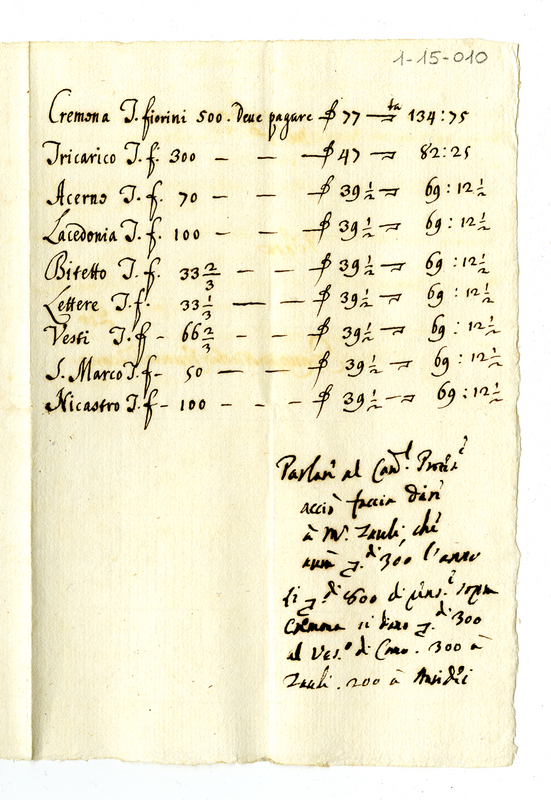 1-15-010
Cremona T. fiorini 500. Deue pagare ₰ 77 — ta 134:75
Tricarico T. f. 300 — — ₰ 47 — 82:25
Acerno T. f. 70 — — ₰ 39 1/2 — 69:12 1/2
Lacedonia T. f. 100 — — ₰ 39 1/2 — 69:12 1/2
Bitetto T. f. 33 2/3 — — ₰ 39 1/2 — 69:12 1/2
Lettere T. f. 33 1/3 — — ₰ 39 1/2 — 69:12 1/2
Vesti T. f - 66 2/3 — — ₰ 39 1/2 — 69:12 1/2
S. Marco T. f - 50 — — ₰ 39 1/2 — 69:12 1/2
Nicastro T. f - 100 — — ₰ 39 1/2 — 69:12 1/2
al Car.l
acciò faccia dari
à Mr. Zauli, che
di 300 l'anno
li di 800 di sopra
Cremona si diano di 300
al Ves.o di Como. 300 à
Zauli. 200 à